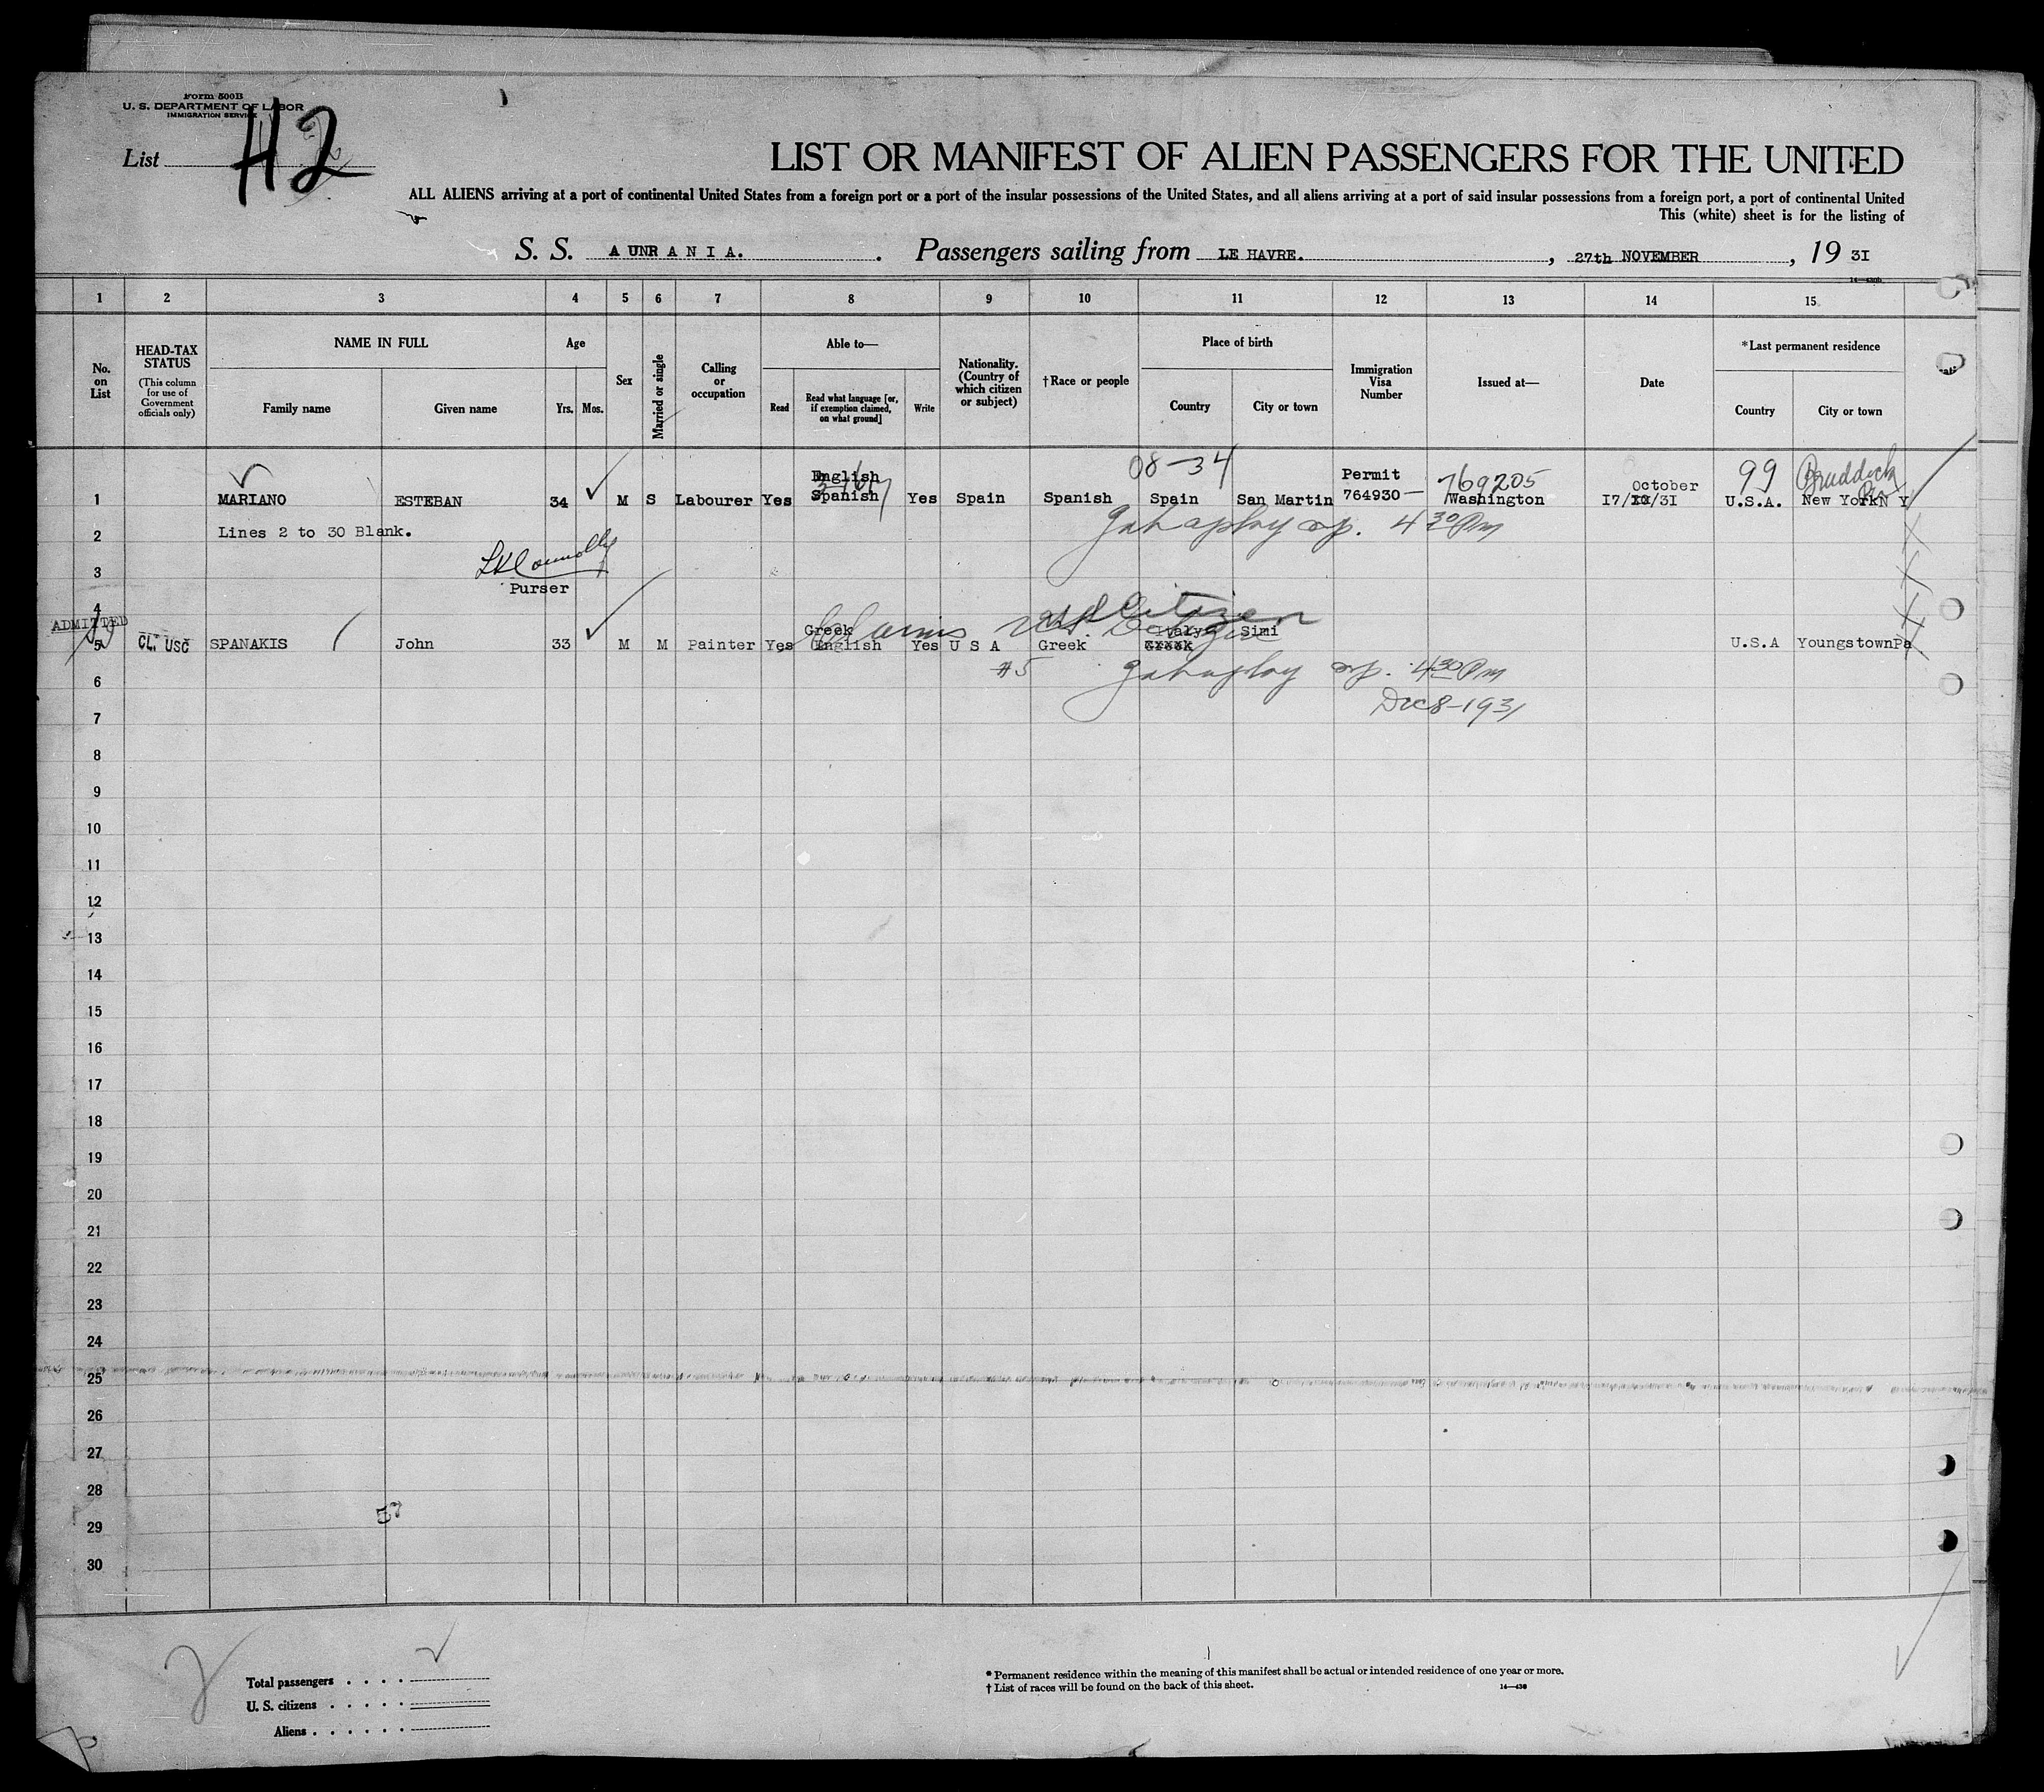 Form 500B
U. S. DEPARTMENT OF LABOR
IMMIGRATION SERVICE
List H2
LIST OR MANIFEST OF ALIEN PASSENGERS FOR THE UNITED
ALL ALIENS arriving at a port of continental United States from a foreign port or a port of the insular possessions of the United States, and all aliens arriving at a port of said insular possessions from a foreign port, a port of continental United
This (white) sheet is for the listing of
S. S. A UNR A N I A. . Passengers sailing from LE HAVRE. , 27th NOVEMBER , 19 3I
1 2 3 4 5 6 7 8 9 10 11 12 13 14 15
No. on List
HEAD-TAX STATUS (This column for use of Government officials only)
NAME IN FULL
Family name Given name
Age
Yrs. Mos.
Sex
Married or single
Calling or occupation
Able to—
Read Read what language [or, if exemption claimed, on what ground] Write
Nationality. (Country of which citizen or subject)
†Race or people
Place of birth
Country City or town
Immigration Visa Number
Issued at—
Date
*Last permanent residence
Country City or town
08-34
English Permit 769205 October 99
1 MARIANO ESTEBAN 34 M S Labourer Yes Spanish Yes Spain Spanish Spain San Martin 764930 Washington I7/10/3I U.S.A. New York N Y
2 Lines 2 to 30 Blank. 4 30 Pm
3
Purser
4
ADMITTED Claims US Citizen
Greek Italy Simi
5 CL. USC SPANAKIS John 33 M M Painter Yes English Yes U S A Greek Greek U.S.A YoungstownPa
#5 4 30 Pm
6
Dec 8-1931
7
8
9
10
11
12
13
14
15
16
17
18
19
20
21
22
23
24
25
26
27
28
29
30
Total passengers
U. S. citizens
Aliens
* Permanent residence within the meaning of this manifest shall be actual or intended residence of one year or more.
† List of races will be found on the back of this sheet.
14—438